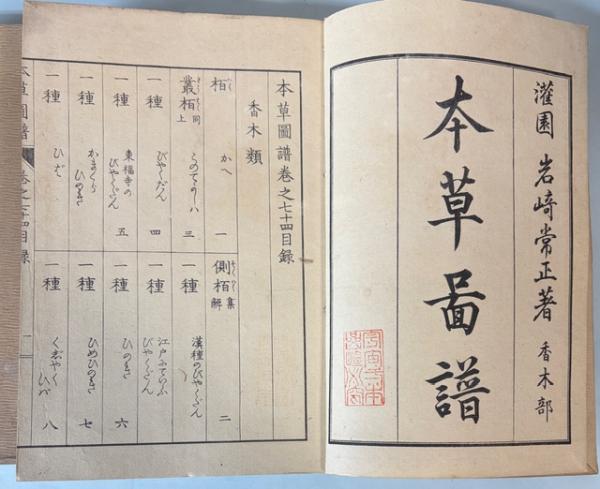 灌園 岩崎常正著 香木部
本草啚譜
本草圖譜卷之七十四目録
香木類
栢 かへ 一
側栢 集解 二
叢栢 同上 このてがしハ 三
一種 漢種のびやくだん
一種 びやくだん 四
一種 江戸にていふびやくだん
一種 東福寺のびやくだん 五
一種 ひのき 六
一種 かまくらひのき
一種 ひめひのき 七
一種 ひば
一種 くじやくひば 八
本草圖譜 卷之七十四目録 一